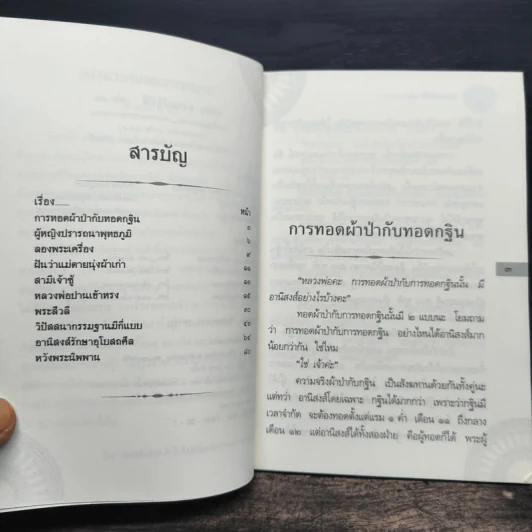 สารบัญ
เรื่อง......
หน้า
การทอดผ้าป่ากับทอดกฐิน
๑
ผู้หญิงปรารถนาพุทธภูมิ
๖
ลองพระเครื่อง
ฝันว่าแม่ตายนุ่งผ้าเก่า
สามีเจ้าชู้
หลวงพ่อปานเข้าทรง
พระสิวลี
วิปัสสนากรรมฐานมีกี่แบบ
อานิสงส์รักษาอุโบสถศีล
หวังพระนิพพาน
การทอดผ้าป่ากับทอดกฐิน
"หลวงพ่อคะ การทอดผ้าป่ากับการทอดกฐินนั้น มี
อานิสงส์อย่างไรบ้างคะ"
ทอดผ้าป่ากับการทอดกฐินนั้นมี ๒ แบบนะ โยมถาม
ว่า การทอดผ้าป่ากับการทอดกฐิน อย่างไหนได้อานิสงส์มาก
น้อยกว่ากัน ใช่ไหม
"ใช่ เจ้าค่ะ"
ความจริงผ้าป่ากับกฐิน เป็นสังฆทานด้วยกันทั้งคู่นะ
แต่ทว่า อานิสงส์โดยเฉพาะ กฐินได้มากกว่า เพราะว่ากฐินมี
เวลาจำกัด จะต้องทอดตั้งแต่แรม ๑ ค่ำ เดือน ๑๑ ถึงกลาง
เดือน ๑๒ แต่อานิสงส์ได้ทั้งสองฝ่าย คือผู้ทอดก็ได้ พระผู้